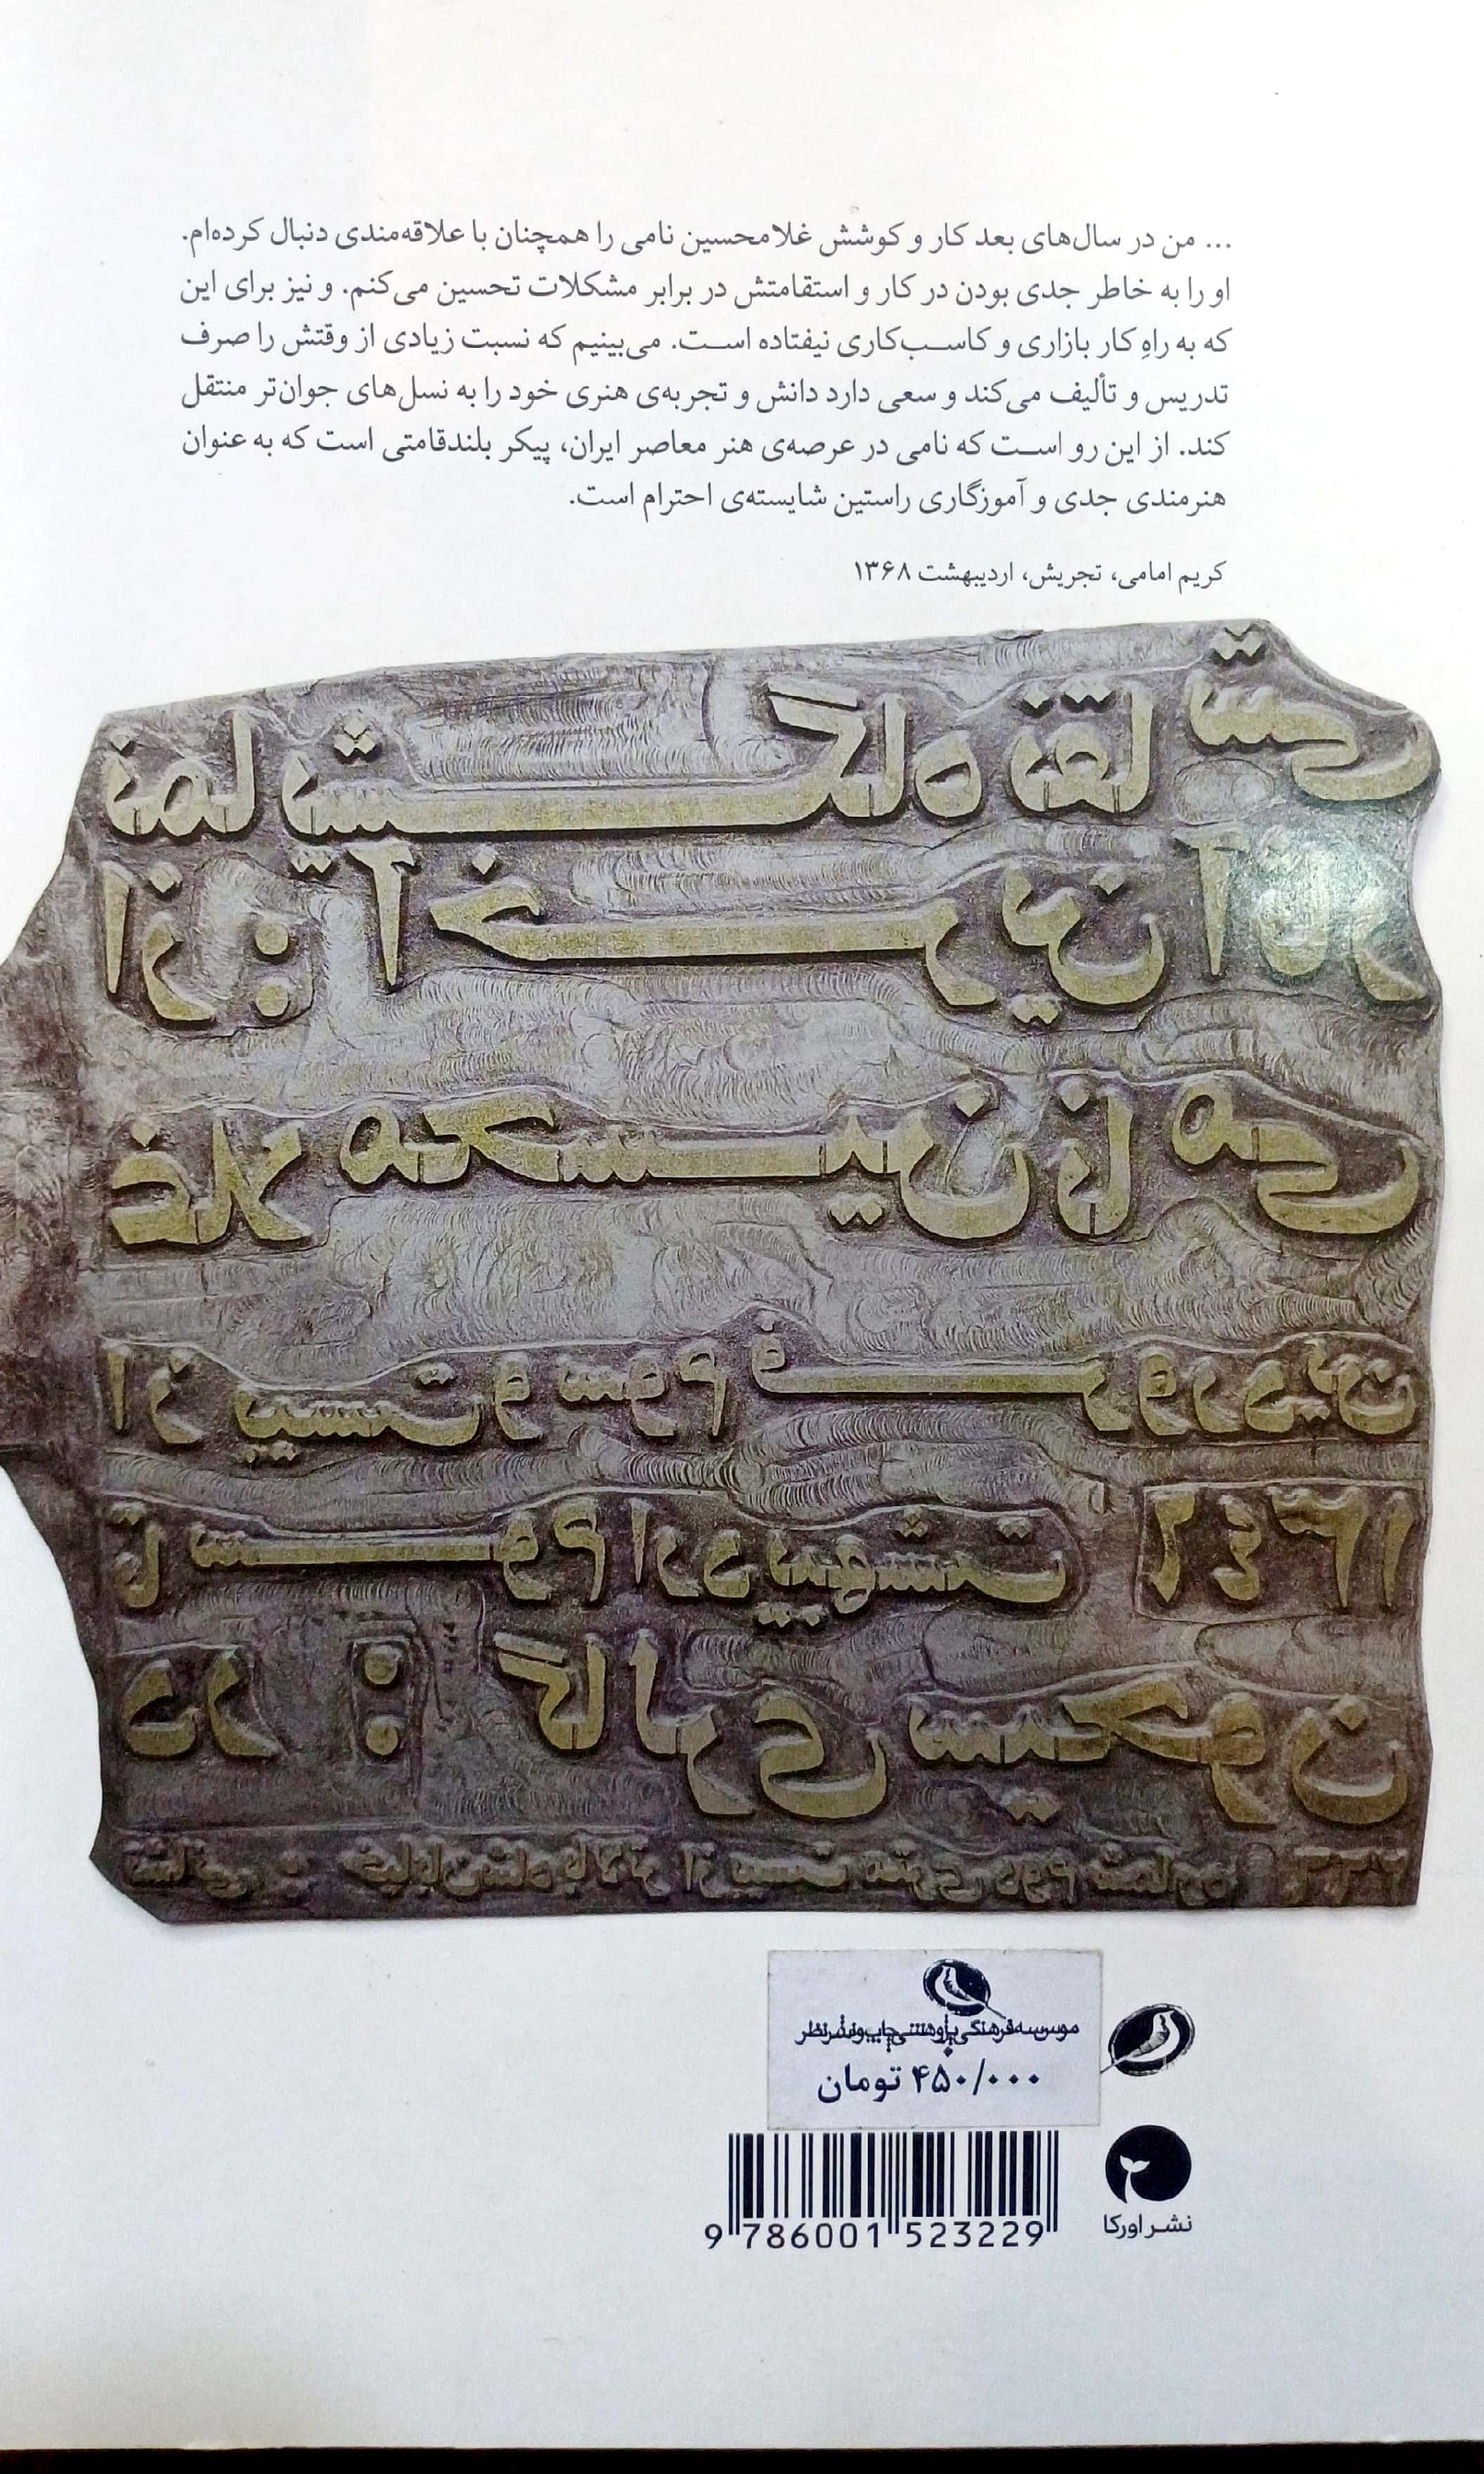 ... من در سال‌های بعد کار و کوشش غلامحسین نامی را همچنان با علاقه‌مندی دنبال کرده‌ام.
او را به خاطر جدی بودن در کار و استقامتش در برابر مشکلات تحسین می‌کنم. و نیز برای این
که به راهِ کار بازاری و کاسب‌کاری نیفتاده است. می‌بینیم که نسبت زیادی از وقتش را صرف
تدریس و تألیف می‌کند و سعی دارد دانش و تجربه‌ی هنری خود را به نسل‌های جوان‌تر منتقل
کند. از این رو است که نامی در عرصه‌ی هنر معاصر ایران، پیکر بلندقامتی است که به عنوان
هنرمندی جدی و آموزگاری راستین شایسته‌ی احترام است.
کریم امامی، تجریش، اردیبهشت ۱۳۶۸
نمایشگاه نقاشی
از: آخرین آثار
غلامحسین نامی
از بیست و سوم فروردین
تا سوم اردیبهشت ١٣٤٦
در : گالری سیحون
نشانی : خیابان شاه بالاتر از بیست متری دوم شماره
موسسه فرهنگی پژوهشی چاپ و نشر نظر
۴۵۰/۰۰۰ تومان
9 786001 523229
نشر اورکا